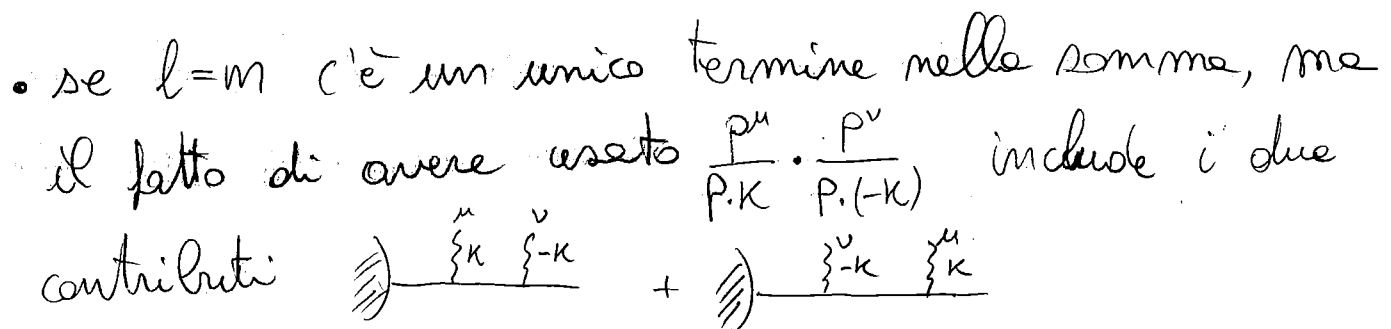 • se l=m c'è un unico termine nella somma, ma
il fatto di avere usato P^μ/P·K · P^ν/P·(-K) include i due
contributi μ K ν -K + ν -K μ K